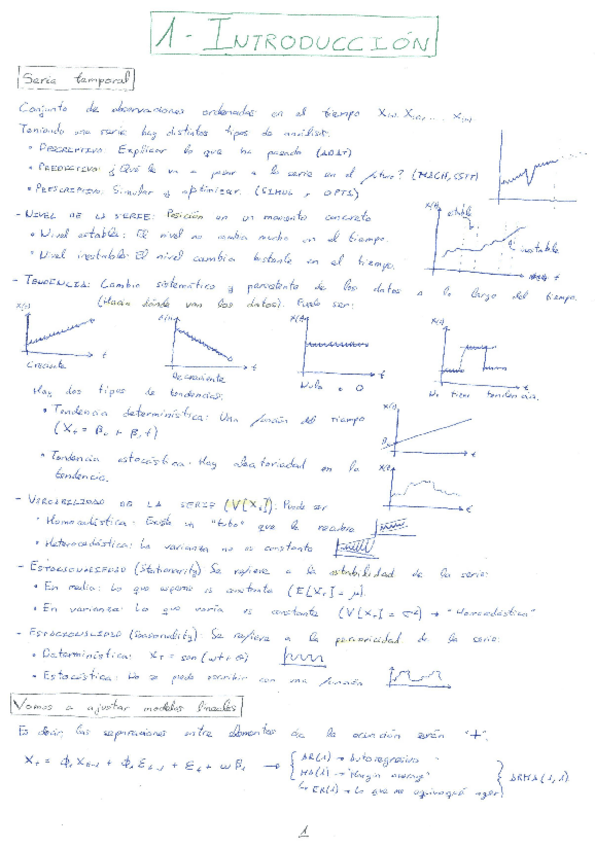 1- INTRODUCCIÓN
Serie temporal
Conjunto de observaciones ordenadas en el tiempo
Teniendo una serie hay distintos tipos de análisis:
• DESCRIPTIVO: Explicar lo que ha pasado
• PREDICTIVO: ¿Qué le va a pasar a la serie en el futuro?
• PRESCRIPTIVO: Simular y optimizar.
- NIVEL DE LA SERIE: Posición en un momento concreto
• Nivel estable: El nivel no cambia mucho en el tiempo.
• Nivel inestable: El nivel cambia bastante en el tiempo.
estable
inestable
- TENDENCIA: Cambio sistemático y persistente de los datos a lo largo del tiempo.
(Hacia dónde van los datos). Puede ser:
Creciente
Decreciente
Nula o 0
No tiene tendencia.
Hay dos tipos de tendencias.
• Tendencia determinística: Una función del tiempo
(Xt = β0 + β1 t)
• Tendencia estocástica: Hay aleatoriedad en la
tendencia.
- VARIABILIDAD DE LA SERIE (V[Xt]): Puede ser
• Homocedástica: Existe un "tubo" que la recubre
• Heterocedástica: La varianza no es constante
- ESTACIONARIEDAD (Stationarity) Se refiere a la estabilidad de la serie:
• En media: Lo que espero es constante (E[Xt] = μ).
• En varianza: Lo que varía es constante (V[Xt] = σ²) → "Homocedástica"
- ESTACIONALIDAD (Seasonality): Se refiere a la periodicidad de la serie:
• Determinística: Xt = sen(wt + θ)
• Estocástica: No se puede escribir con una función
Vamos a ajustar modelos lineales
Es decir, las separaciones entre elementos de la ecuación serán "+".
AR(1) → Autoregresivo
MA(1) →
ER(1) → Lo que me equivoqué ayer
ARMA(1,1)
1